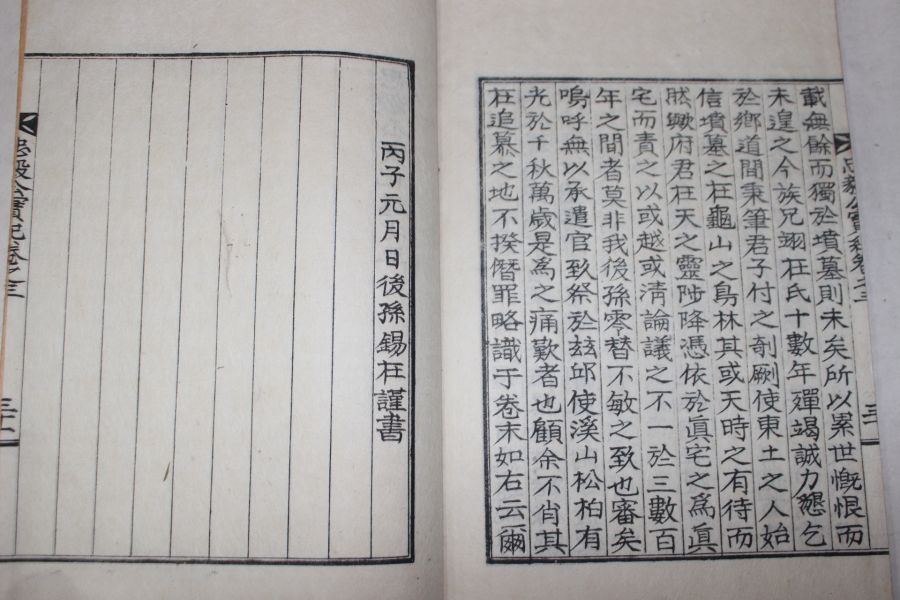 載無餘而獨於墳墓則未矣所以累世慨恨而
未遑之今族兄翊在氏十數年殫竭誠力懇乞
於鄕道間秉筆君子付之剞劂使東土之人始
信墳墓之在龜山之鳥林其或天時之有待而
肰歟府君在天之靈陟降憑依於眞宅之爲眞
宅而責之以或越或淸論議之不一於三數百
年之間者莫非我後孫零替不敏之致也審矣
嗚呼無以承遣官致祭於玆邱使溪山松柏有
光於千秋萬歲是爲之痛歎者也顧余不肖其
在追慕之地不揆僭罪略識于卷末如右云爾
忠毅公實紀卷之三
三十
丙子元月日後孫錫在謹書
忠毅公實紀卷之三
三十一